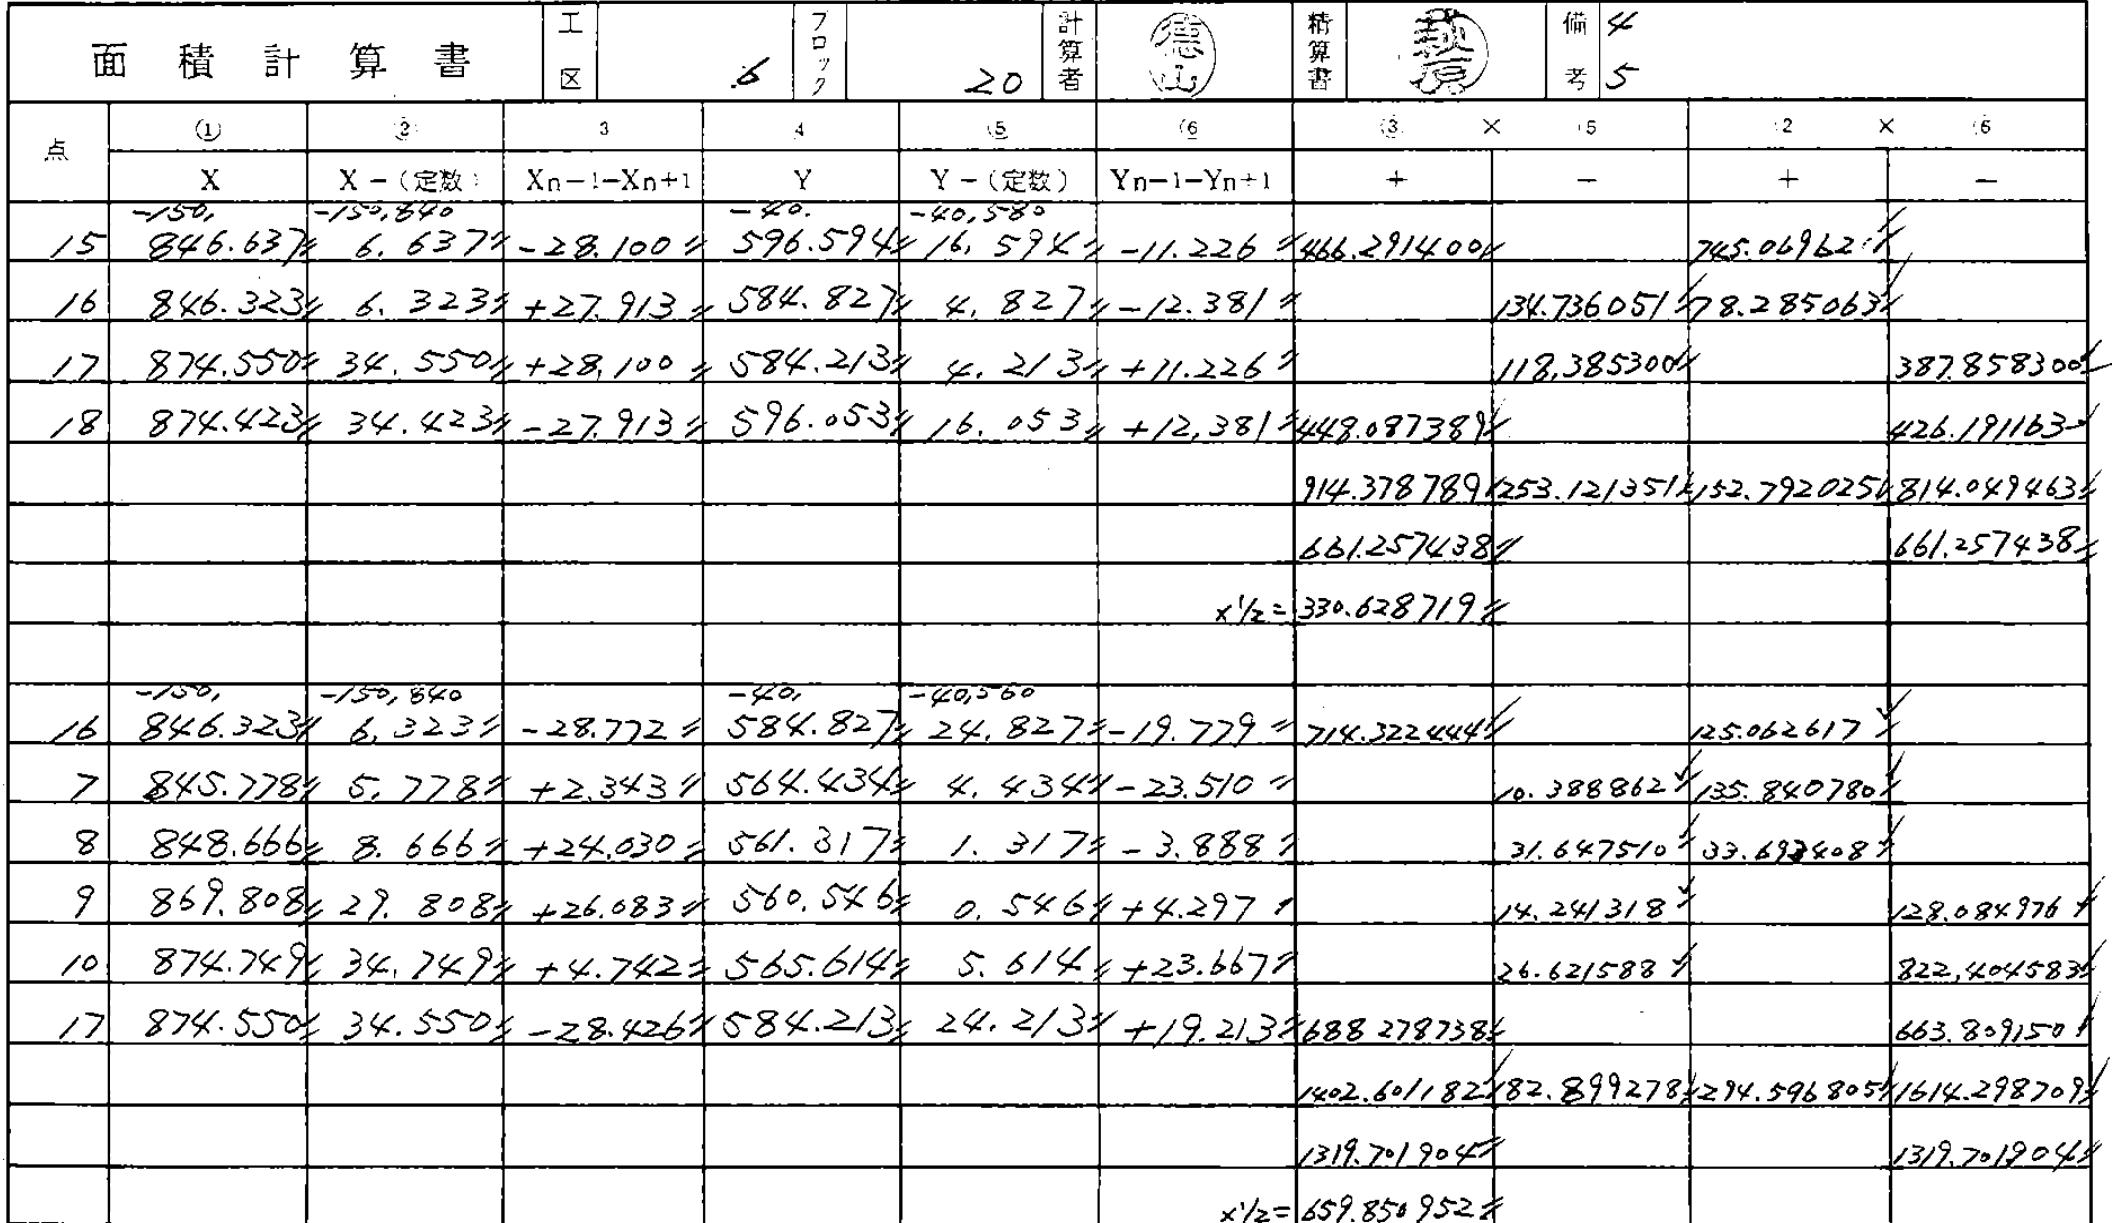 面積計算書 工区 6 ブロック 20 計算者 徳山 精算書 萩原 備考 4 5
点 ① ② 3 4 ⑤ ⑥ ③ × 5 2 × 6
X X-(定数) Xn-1-Xn+1 Y Y-(定数) Yn-1-Yn+1 + - + -
-150, -150,840 -40. -40,580
15 846.637 6.637 -28.100 596.594 16.594 -11.226 466.291400
16 846.323 6.323 +27.913 584.827 4.827 -12.381 134.736051 78.285063
17 874.550 34.550 +28.100 584.213 4.213 +11.226 118.385300 387.858300
18 874.423 34.423 -27.913 596.053 16.053 +12.381 448.087389 426.191163
914.378789 253.121351 152.792025 814.049463
661.257438 661.257438
×1/2= 330.628719
-150, -150,840 -40, -40,560
16 846.323 6.323 -28.772 584.827 24.827 -19.779 714.322444 125.062617
7 845.778 5.778 +2.343 564.434 4.434 -23.510 10.388862 135.840780
8 848.666 8.666 +24.030 561.317 1.317 -3.888 31.647510 33.693408
9 869.808 29.808 +26.083 560.546 0.546 +4.297 14.241318 128.084976
10 874.749 34.749 +4.742 565.614 5.614 +23.667 26.621588 822.404583
17 874.550 34.550 -28.426 584.213 24.213 +19.213 688 278738 663.809150
1402.601182 82.899278 294.596805 1614.298709
1319.701904 1319.701904
×1/2= 659.850952